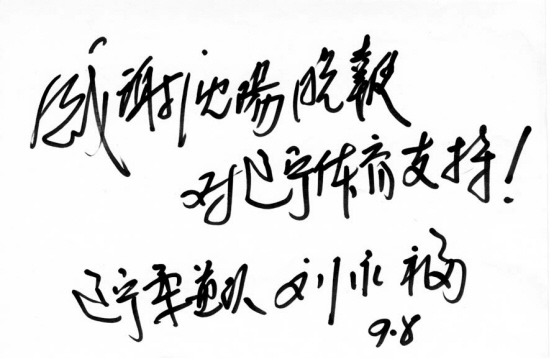 感谢沈陽晚報
对辽宁体育支持!
辽宁柔道队 刘永福
9.8